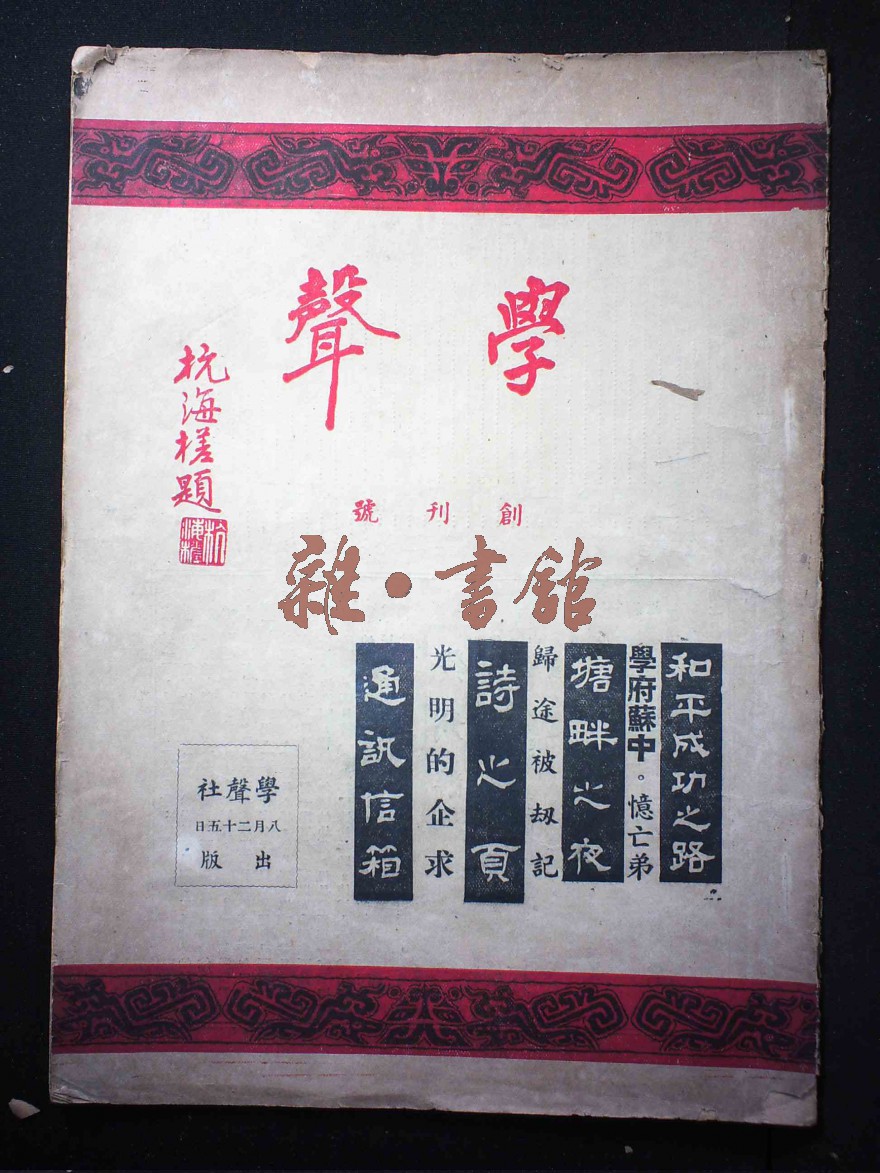 學聲
杭海槎題
創刊號
雜·書館
和平成功之路
學府蘇中。憶亡弟
塘畔之夜
歸途被刼記
詩之頁
光明的企求
通訊信箱
學聲社
八月二十五日
出版